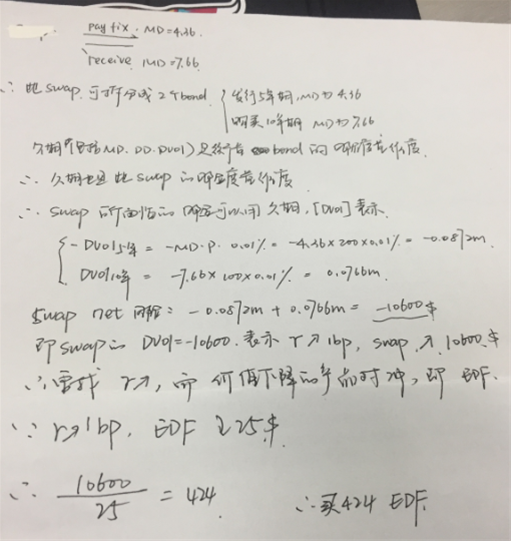 pay fix. MD=4.36.
receive MD=7.66
∴ 此swap.可拆分成2个bond. { 发行5年期,MD为4.36
购买10年期 MD为7.66
久期(包括MD.DD.DV01)是衡量 bond的风险度量仪度.
∴ 久期也是此swap的风险度量仪度
∴ swap所面临的风险可以用久期,[DV01]表示.
{ -DV01 5年 = -MD·P· 0.01% = -4.36×200×0.01% = -0.0872m.
DV01 10年 = -7.66×100×0.01% = 0.0766m.
swap net 风险: -0.0872m + 0.0766m = -10600$
即swap的 DV01=-10600.表示 r↗1bp, swap ↗ 10600.$
∴需找 r↗,而价值下降的产品对冲,即 EDF.
∵ r↗1bp, EDF ↓25$.
∴ 10600/25 = 424 ∴买424 EDF.